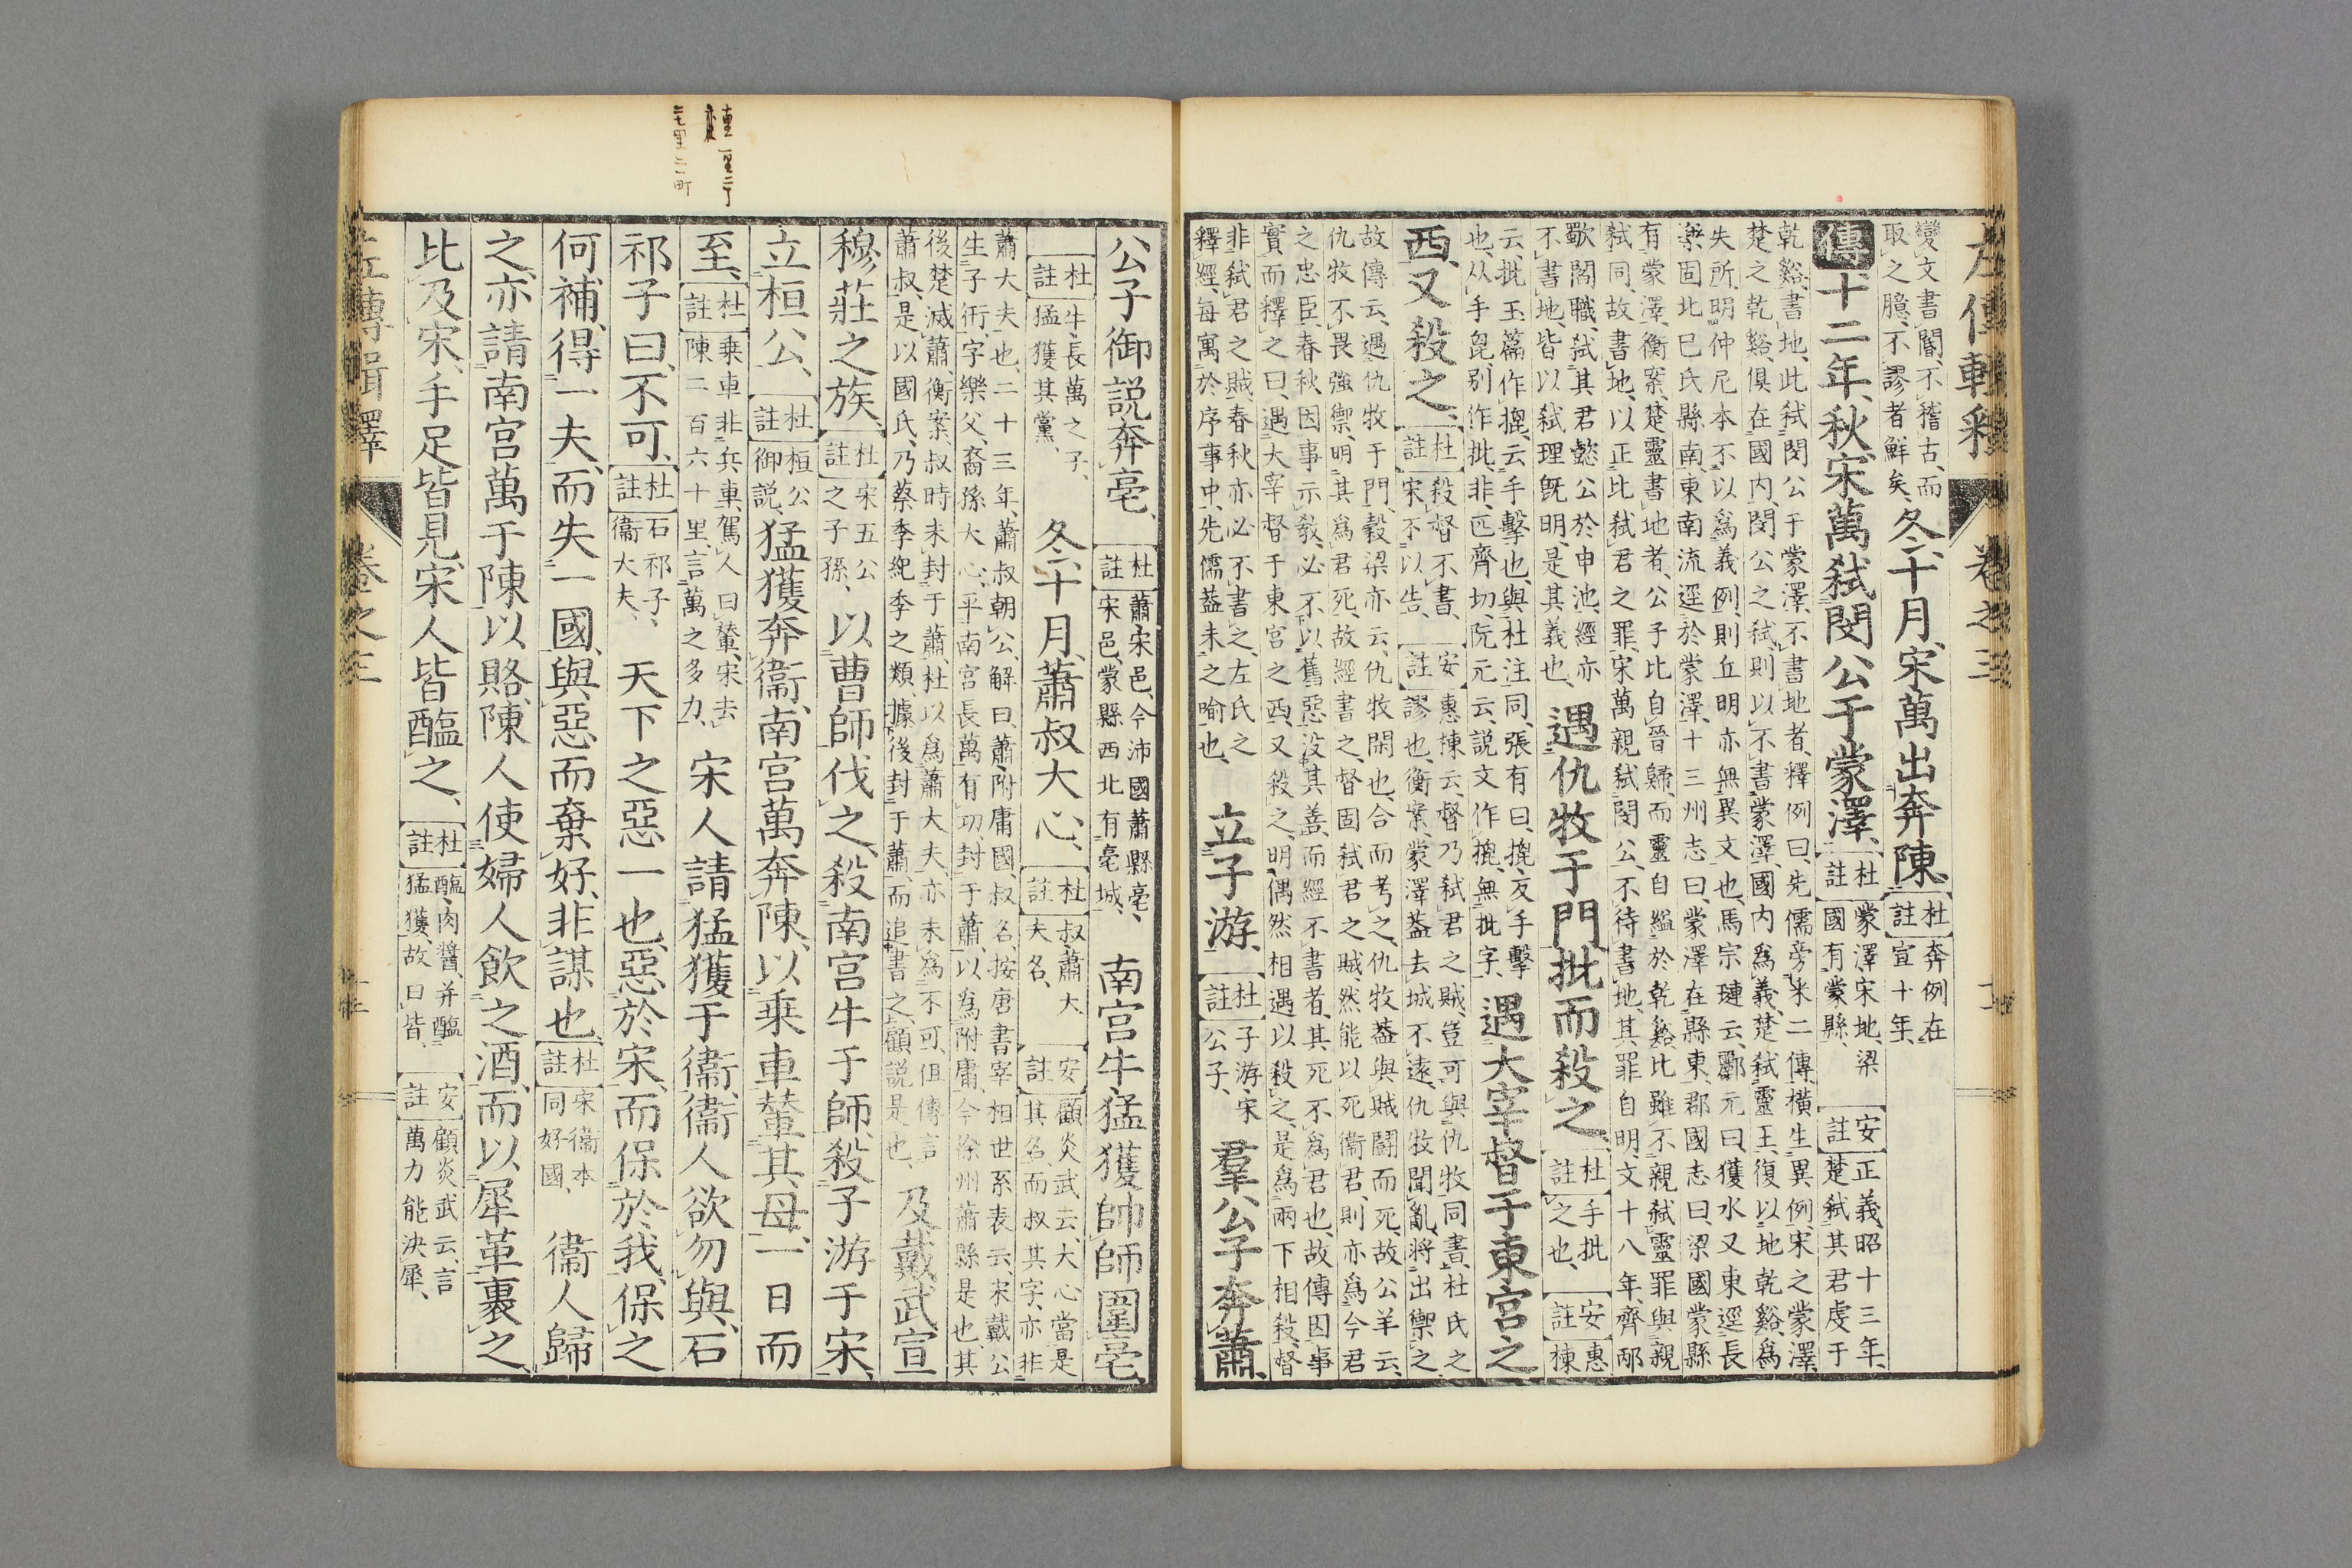 變文書閽、不稽古、而
取之臆、不謬者鮮矣、
冬、十月、宋萬出奔陳、
杜註 奔例在
宣十年、
傳十二年、秋、宋萬弒閔公于蒙澤、
杜註 蒙澤、宋地、梁
國有蒙縣、
安註 正義、昭十三年、
楚弒其君虔于
乾谿、書地、此弒閔公于蒙澤、不書地者、釋例曰、先儒旁采二傳、橫生異例、宋之蒙澤、
楚之乾谿、俱在國內、閔公之弒、則以不書蒙澤、國內爲義、楚弒靈王、復以地乾谿、爲
失所、明仲尼本不以爲義例、則丘明亦無異文也、馬宗璉云、酈元曰、獲水又東逕長
樂固北巳氏縣南、東南流逕於蒙澤、十三州志曰、蒙澤在縣東、郡國志曰、梁國蒙縣
有蒙澤、衡案、楚靈書地者、公子比自晉歸、而靈自縊於乾谿、比雖不親弒、靈罪與親
弒同、故書地、以正比弒君之罪、宋萬親弒閔公、不待書地、其罪自明、文十八年、齊邴
歜閻職、弒其君懿公於申池、經亦
不書地、皆以弒理旣明、是其義也、
遇仇牧于門、批而殺之、
杜註 手批
之也、
安註 惠
棟
云、批玉篇作㧗、云手擊也、與杜注同、張有曰、㧗、反手擊
也、从手㲋、別作批、非、匹齊切、阮元云、說文作㧗、無批字、
遇大宰督于東宮之
西、又殺之、
杜註 殺督不書、
宋不以告、
安註 惠棟云、督乃弒君之賊、豈可與仇牧同書、杜氏之
謬也、衡案、蒙澤蓋去城不遠、仇牧聞亂、將出禦之、
故傳云、遇仇牧于門、穀梁亦云、仇牧閑也、合而考之、仇牧蓋與賊鬪而死、故公羊云、
仇牧不畏強禦、明其爲君死、故經書之、督固弒君之賊、然能以死衞君、則亦爲今君
之忠臣、春秋因事示敎、必不以舊惡沒其善、而經不書者、其死不爲君也、故傳因事
實而釋之曰、遇大宰督于東宮之西、又殺之、明偶然相遇以殺之、是爲兩下相殺、督
非弒君之賊、春秋亦必不書之、左氏之
釋經、每寓於序事中、先儒蓋未之喻也、
立子游、
杜註 子游、宋
公子、
羣公子奔蕭、
公子御說奔亳、
杜註 蕭、宋邑、今沛國蕭縣、亳、
宋邑、蒙縣西北有亳城、
南宮牛、猛獲帥師圍亳、
杜註 牛、長萬之子、
猛獲其黨、
冬、十月、蕭叔大心、
杜註 叔、蕭大
夫名、
安註 顧炎武云、大心當是
其名、而叔其字、亦非
蕭大夫也、二十三年、蕭叔朝公、解曰、蕭、附庸國、叔名、按唐書宰相世系表云、宋戴公
生子衎、字樂父、裔孫大心、平南宮長萬有功、封于蕭、以爲附庸、今徐州蕭縣是也、其
後楚滅蕭、衡案、叔時未封于蕭、杜以爲蕭大夫、亦未爲不可、但傳言
蕭叔、是以國氏、乃蔡季紀季之類、據後封于蕭、而追書之、顧說是也、
及戴武宣
穆莊之族、
杜註 宋五公
之子孫、
以曹師伐之、殺南宮牛于師、殺子游于宋、
立桓公、
杜註 桓公、
御說、
猛獲奔衞、南宮萬奔陳、以乘車輦其母、一日而
至、
杜註 乘車非兵車、駕人曰輦、宋去
陳二百六十里、言萬之多力、
宋人請猛獲于衞、衞人欲勿與、石
祁子曰、不可、
杜註 石祁子、
衞大夫、
天下之惡一也、惡於宋、而保於我、保之
何補、得一夫、而失一國、與惡而棄好、非謀也、
杜註 宋衞本
同好國、
衞人歸
之、亦請南宮萬于陳、以賂、陳人使婦人飲之酒、而以犀革裹之、
比及宋、手足皆見、宋人皆醢之、
杜註 醢、肉醬、并醢
猛獲、故曰皆、
安註 顧炎武云、言
萬力能決犀、
左傳輯釋 卷之三